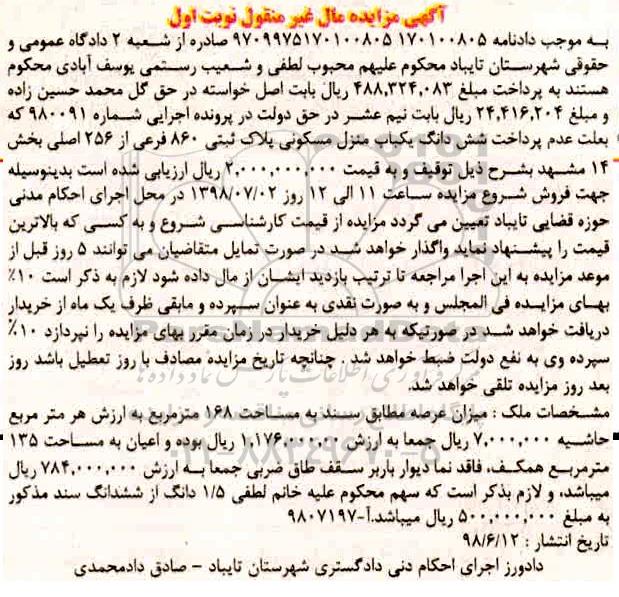 آگهی مزایده مال غیر منقول نوبت اول
به موجب دادنامه ۱۷۰۱۰۰۸۰۵ ۹۷۰۹۹۷۵۱۷۰۱۰۰۸۰۵ صادره از شعبه ۲ دادگاه عمومی و
حقوقی شهرستان تایباد محکوم علیهم محبوب لطفی و شعیب رستمی یوسف آبادی محکوم
هستند به پرداخت مبلغ ۴۸۸,۳۲۴,۰۸۳ ریال بابت اصل خواسته در حق گل محمد حسین زاده
و مبلغ ۲۴,۴۱۶,۲۰۴ ریال بابت نیم عشر در حق دولت در پرونده اجرایی شماره ۹۸۰۰۹۱ که
بعلت عدم پرداخت شش دانگ یکباب منزل مسکونی پلاک ثبتی ۸۶۰ فرعی از ۲۵۶ اصلی بخش
۱۴ مشهد بشرح ذیل توقیف و به قیمت ۲,۰۰۰,۰۰۰,۰۰۰ ریال ارزیابی شده است بدینوسیله
جهت فروش شروع مزایده ساعت ۱۱ الی ۱۲ روز ۱۳۹۸/۰۷/۰۲ در محل اجرای احکام مدنی
حوزه قضایی تایباد تعیین می گردد مزایده از قیمت کارشناسی شروع و به کسی که بالاترین
قیمت را پیشنهاد نماید واگذار خواهد شد در صورت تمایل متقاضیان می توانند ۵ روز قبل از
موعد مزایده به این اجرا مراجعه تا ترتیب بازدید ایشان از مال داده شود لازم به ذکر است ۱۰٪
بهای مزایده فی المجلس و به صورت نقدی به عنوان سپرده و مابقی ظرف یک ماه از خریدار
دریافت خواهد شد در صورتیکه به هر دلیل خریدار در زمان مقرر بهای مزایده را نپردازد ۱۰٪
سپرده وی به نفع دولت ضبط خواهد شد . چنانچه تاریخ مزایده مصادف با روز تعطیل باشد روز
بعد روز مزایده تلقی خواهد شد.
مشخصات ملک : میزان عرصه مطابق سند به مساحت ۱۶۸ مترمربع به ارزش هر متر مربع
حاشیه ۷,۰۰۰,۰۰۰ ریال جمعا به ارزش ۱,۱۷۶,۰۰۰,۰۰ ریال بوده و اعیان به مساحت ۱۳۵
مترمربع همکف، فاقد نما دیوار باربر سقف طاق ضربی جمعا به ارزش ۷۸۴,۰۰۰,۰۰۰ ریال
میباشد، و لازم بذکر است که سهم محکوم علیه خانم لطفی ۱/۵ دانگ از ششدانگ سند مذکور
به مبلغ ۵۰۰,۰۰۰,۰۰۰ ریال میباشد.آ-۹۸۰۷۱۹۷
تاریخ انتشار : ۹۸/۶/۱۲
دادورز اجرای احکام دنی دادگستری شهرستان تایباد – صادق دادمحمدی